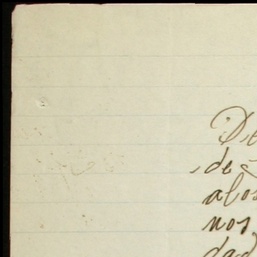 De
de
alos
nos
dad